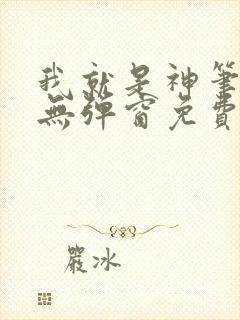 我就是神筆
無彈窗免費
嚴冰